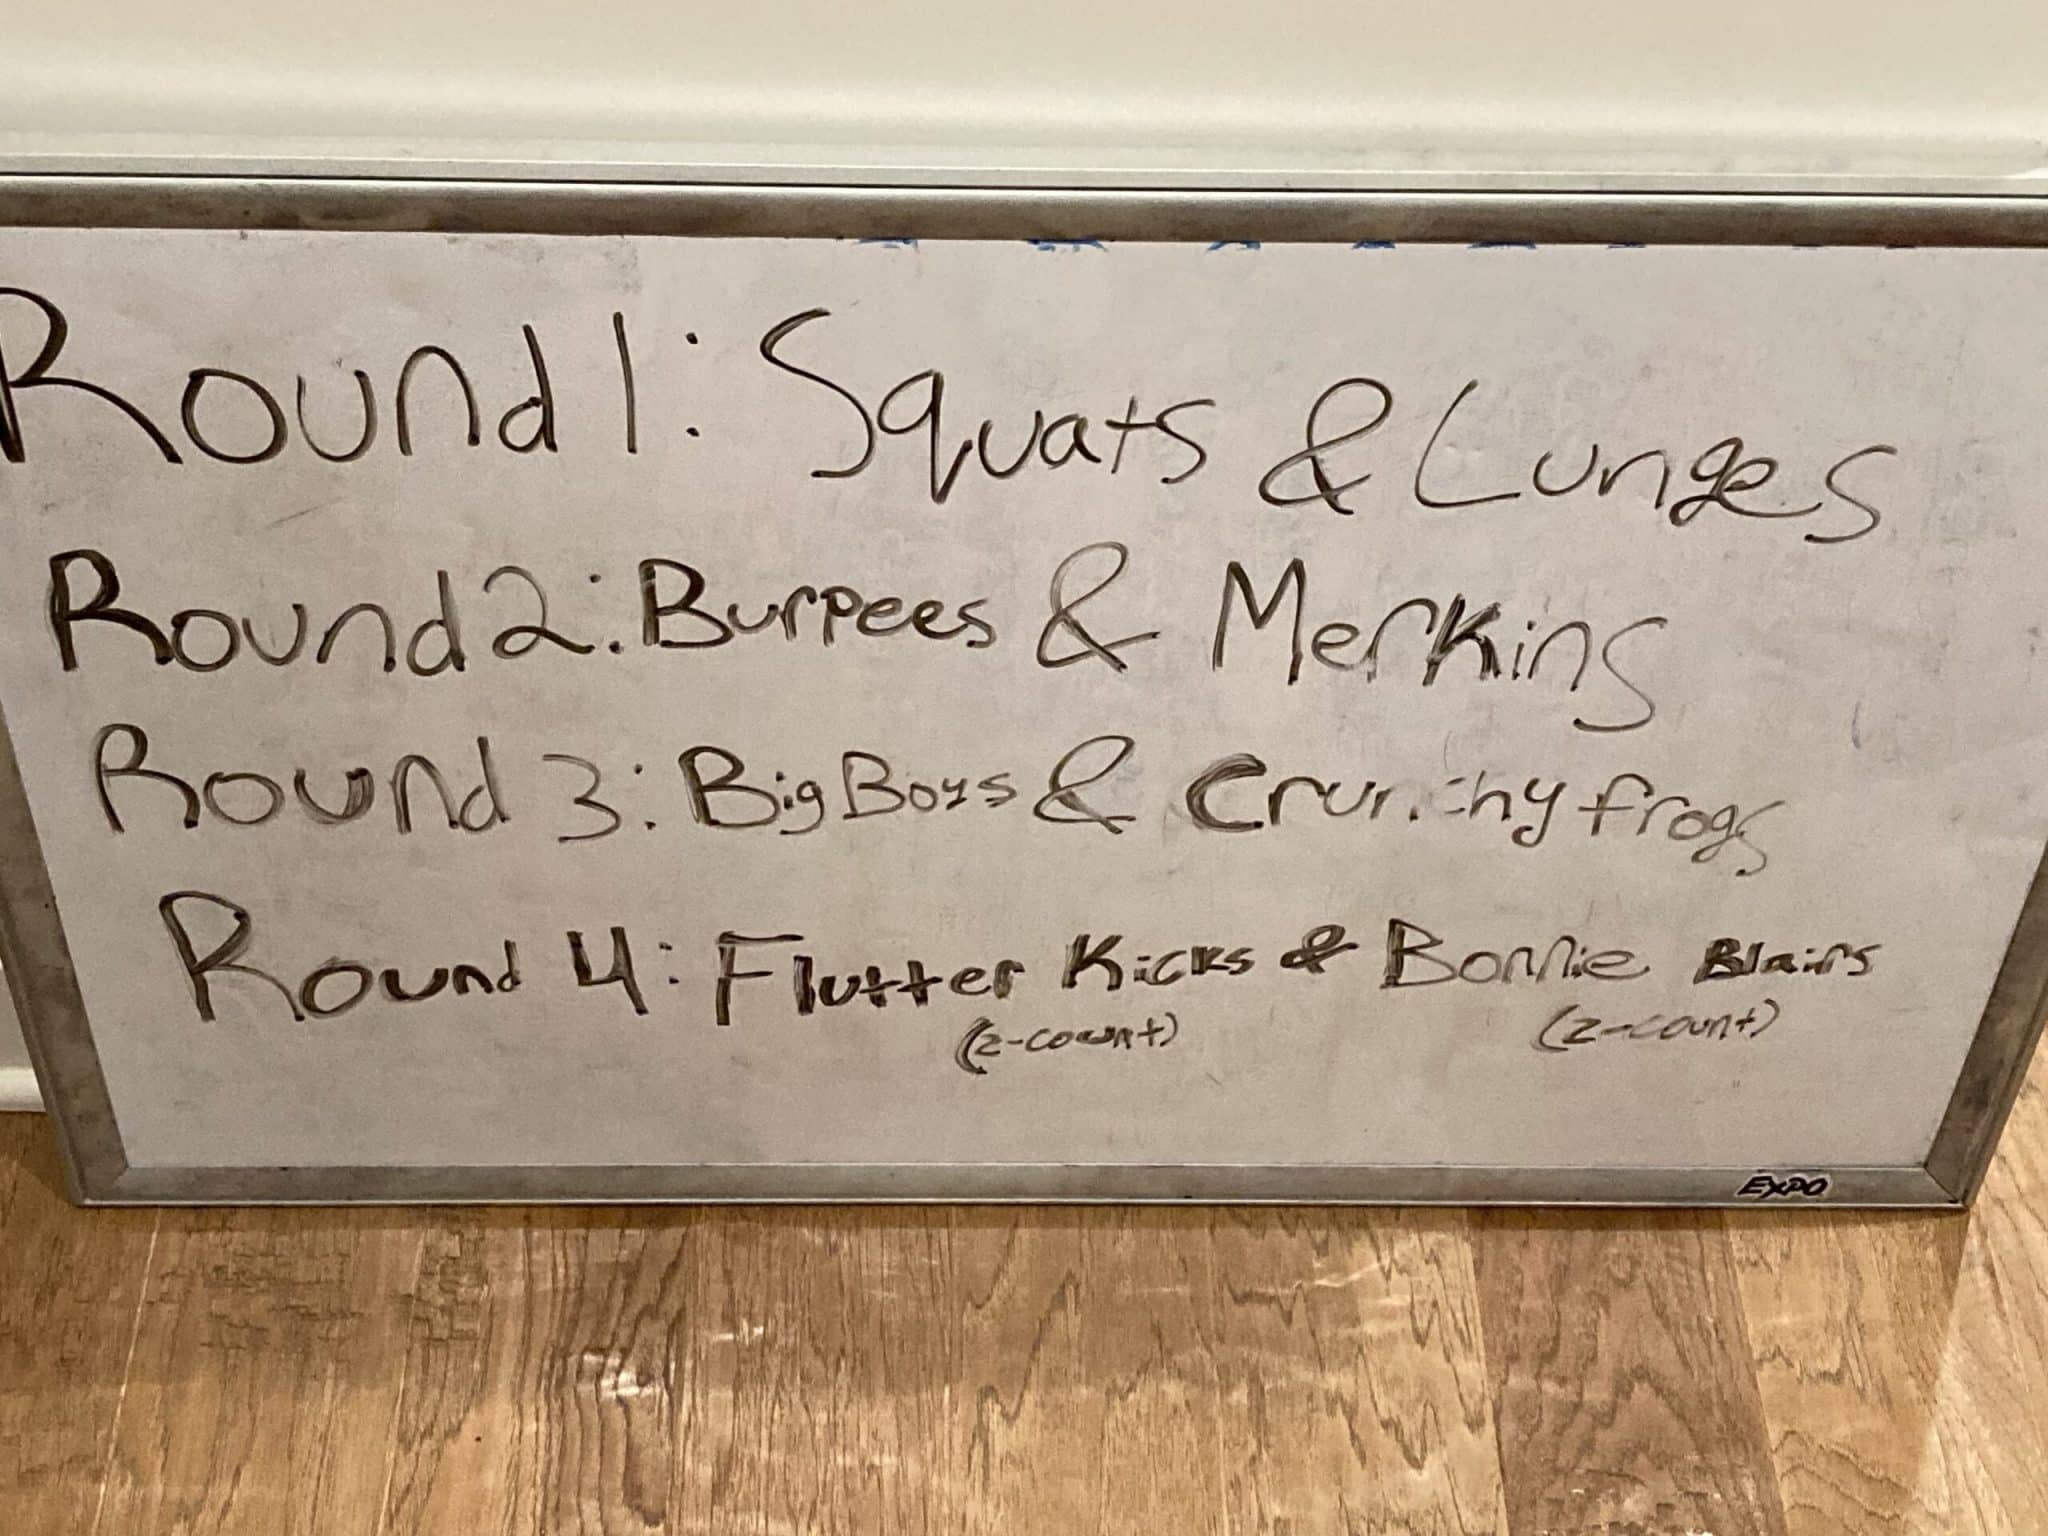 Round 1: Squats & Lunges
Round 2: Burpees & Merkins
Round 3: Big Boys & Crunchy frogs
Round 4: Flutter Kicks & Bonnie Blairs
(2-count) (2-count)
EXPO